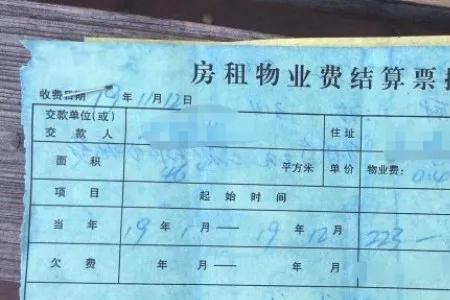 房租物业费结算票
收费日期 19 年 11 月 12 日
交款单位(或)
交款人 住址
面积 46 平方米 单价 物业费:
项目 起始时间
当年 19 年 1 月 — 19 年 12 月 223 —
欠费 年 月 — 年 月